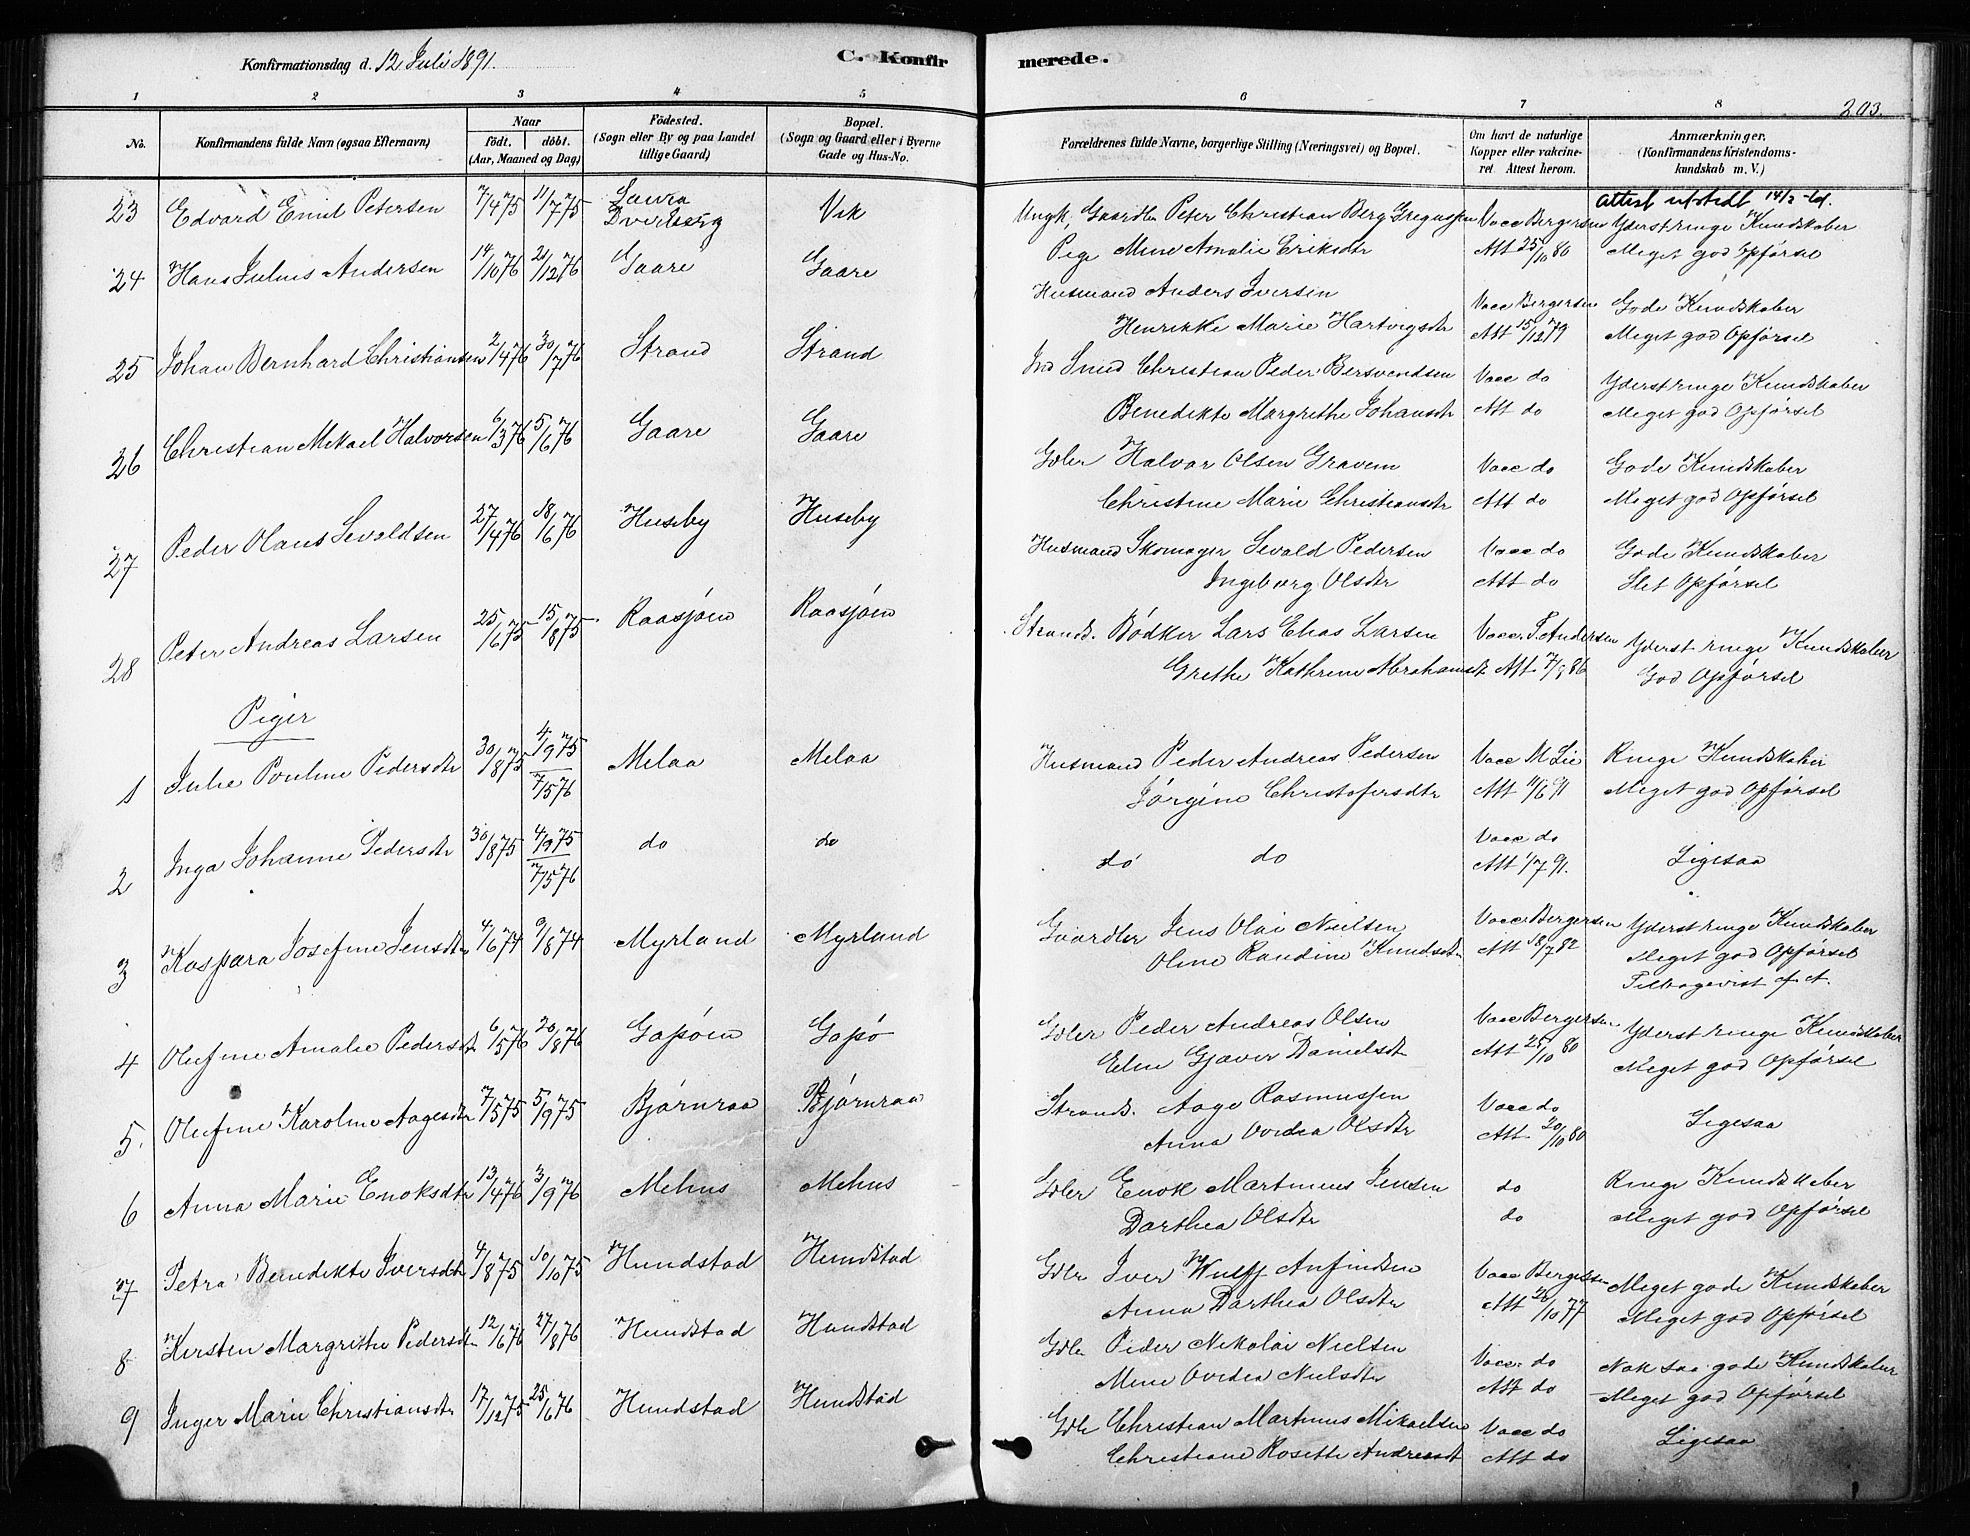 Konfirmationsdag d. 12 Juli 1891.
C. Konfirmerede.
203.
1 2 3 4 5 6 7 8
No. Konfirmandens fulde Navn (ogsaa Efternavn) Naar født. døbt. (Aar, Maaned og Dag) Fødested. (Sogn eller By og paa Landet tillige Gaard) Bopæl. (Sogn og Gaard eller i Byerne Gade og Hus-No. Forældrenes fulde Navne, borgerlige Stilling (Næringsvei) og Bopæl. Om havt de naturlige Kopper eller vakcineret. Attest herom. Anmærkninger. (Konfirmandens Kristendomskundskab m. V.)
attest utstedt 14/3
23 Edvard Emil Petersen 7/4 75 11/7 75 Dverberg Vik Ungk. Gaardbr Peter Christian Berg Gregussen Vacc Bergersen Yderst ringe Kundskaber
Pige Mine Amalie Eriksdtr Att 25/10 80 Meget god Opførsel
24 Hans Julius Andersen 14/10 76 26/12 76 Gaare Gaare Husmand Anders Iversen Vacc Bergersen Gode Kundskaber
Henrikke Marie Hartvigsdtr Att 15/12 79 Meget god Opførsel
25 Johan Bernhard Christiansen 2/4 76 30/7 76 Strand Strand Ind Smed Christian Peder Bersvendsen Vacc do Yderst ringe Kundskaber
Benedikte Margrethe Johansdtr Att do Meget god Opførsel
26 Christian Mikael Halvorsen 6/3 76 5/6 76 Gaare Gaare Gdler Halvor Olsen Gravem Vacc do Gode Kundskaber
Christine Marie Christiansdtr Att do Meget god Opførsel
27 Peder Olaus Sevaldsen 27/4 76 18/6 76 Huseby Huseby Husmand Skomager Sevald Pedersen Vacc do Gode Kundskaber
Ingeborg Olsdtr Att do Slet Opførsel
28 Peter Andreas Larsen 25/6 75 15/8 75 Raasjøen Raasjøen Strands. Bødker Lars Elias Larsen Vacc. T. Andersen Yderst ringe Kundskaber
Grethe Kathrine Abrahamsdtr Att 86 God Opførsel
Piger
1 Julie Pouline Pedersdtr 30/8 75 4/9 75 7/5 76 Melaa Melaa Husmand Peder Andreas Pedersen Vacc M Lie Ringe Kundskaber
Jørgine Christofersdtr Att 11/6 91 Meget god Opførsel
2 Inga Johanne Pedersdtr 30/8 75 4/9 75 7/5 76 do do do do Vacc do Ligesaa
Att 1/7 91.
3 Kaspara Josefine Jensdtr 4/6 74 9/8 74 Myrland Myrland Gaardler Jens Olai Nielsen Vacc Bergersen Yderst ringe Kundskaber
Oline Randine Knudsdtr Att 18/7 82 Meget god Opførsel
Tilbagevist f. A.
4 Olufine Amalie Pedersdtr 6/5 76 20/8 76 Gapøen Gapø Gdler Peder Andreas Olsen Vacc Bergersen Yderst ringe Kundskaber
Elen Gjæver Danielsdtr Att 25/10 80 Meget god Opførsel
5. Olufine Karoline Aagesdtr 7/5 75 5/9 75 Bjørnraa Bjørnraa Strands. Aage Rasmussen Vacc do Ligesaa
Anna Ovidia Olsdtr Att 20/10 80
6 Anna Marie Enoksdtr 13/4 76 3/9 76 Mehus Mehus Gdler Enok Martinus Jensen do Ringe Kundskaber
Darthea Olsdtr do Meget god Opførsel
7 Petra Benedikte Iversdtr 4/8 75 10/10 75 Hundstad Hundstad Gdler Iver Wulff Anfindsen Vacc Bergersen Meget gode Kundskaber
Anna Darthea Olsdtr Att 26/10 77 Meget god Opførsel
8 Kirsten Margrethe Pedersdtr 12/6 76 27/8 76 Hundstad Hundstad Gdler Peder Nikolai Nielsen Vacc. do Nok saa gode Kundskaber
Mine Ovidia Nielsdtr Att do Meget god Opførsel
9 Inger Marie Christiansdtr 17/12 75 25/6 76 Hundstad Hundstad Gdler Christian Martinus Mikaelsen Vacc do Ligesaa
Christiane Rosette Andreasdtr Att do